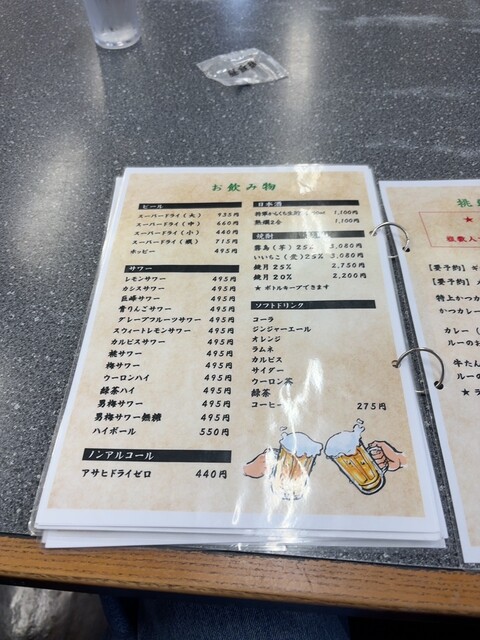 お飲み物
ビール
スーパードライ(大) 935円
スーパードライ(中) 660円
スーパードライ(小) 440円
スーパードライ(瓶) 715円
ホッピー 495円
サワー
レモンサワー 495円
カシスサワー 495円
巨峰サワー 495円
青りんごサワー 495円
グレープフルーツサワー 495円
スウィートレモンサワー 495円
カルピスサワー 495円
桃サワー 495円
梅サワー 495円
ウーロンハイ 495円
緑茶ハイ 495円
男梅サワー 495円
男梅サワー無糖 495円
ハイボール 550円
ノンアルコール
アサヒドライゼロ 440円
日本酒
1,100円
熱燗2合 1,100円
焼酎
霧島(芋)25% 3,080円
いいちこ(麦)25% 3,080円
鏡月25% 2,750円
鏡月20% 2,200円
★ ボトルキープできます
ソフトドリンク
コーラ
ジンジャーエール
オレンジ
ラムネ
カルピス
サイダー
ウーロン茶
緑茶
コーヒー 275円
★
【要予約】
【要予約】
特上かつカ
かつカレー
カレー(
ルーのお
牛たん
ルーの
★